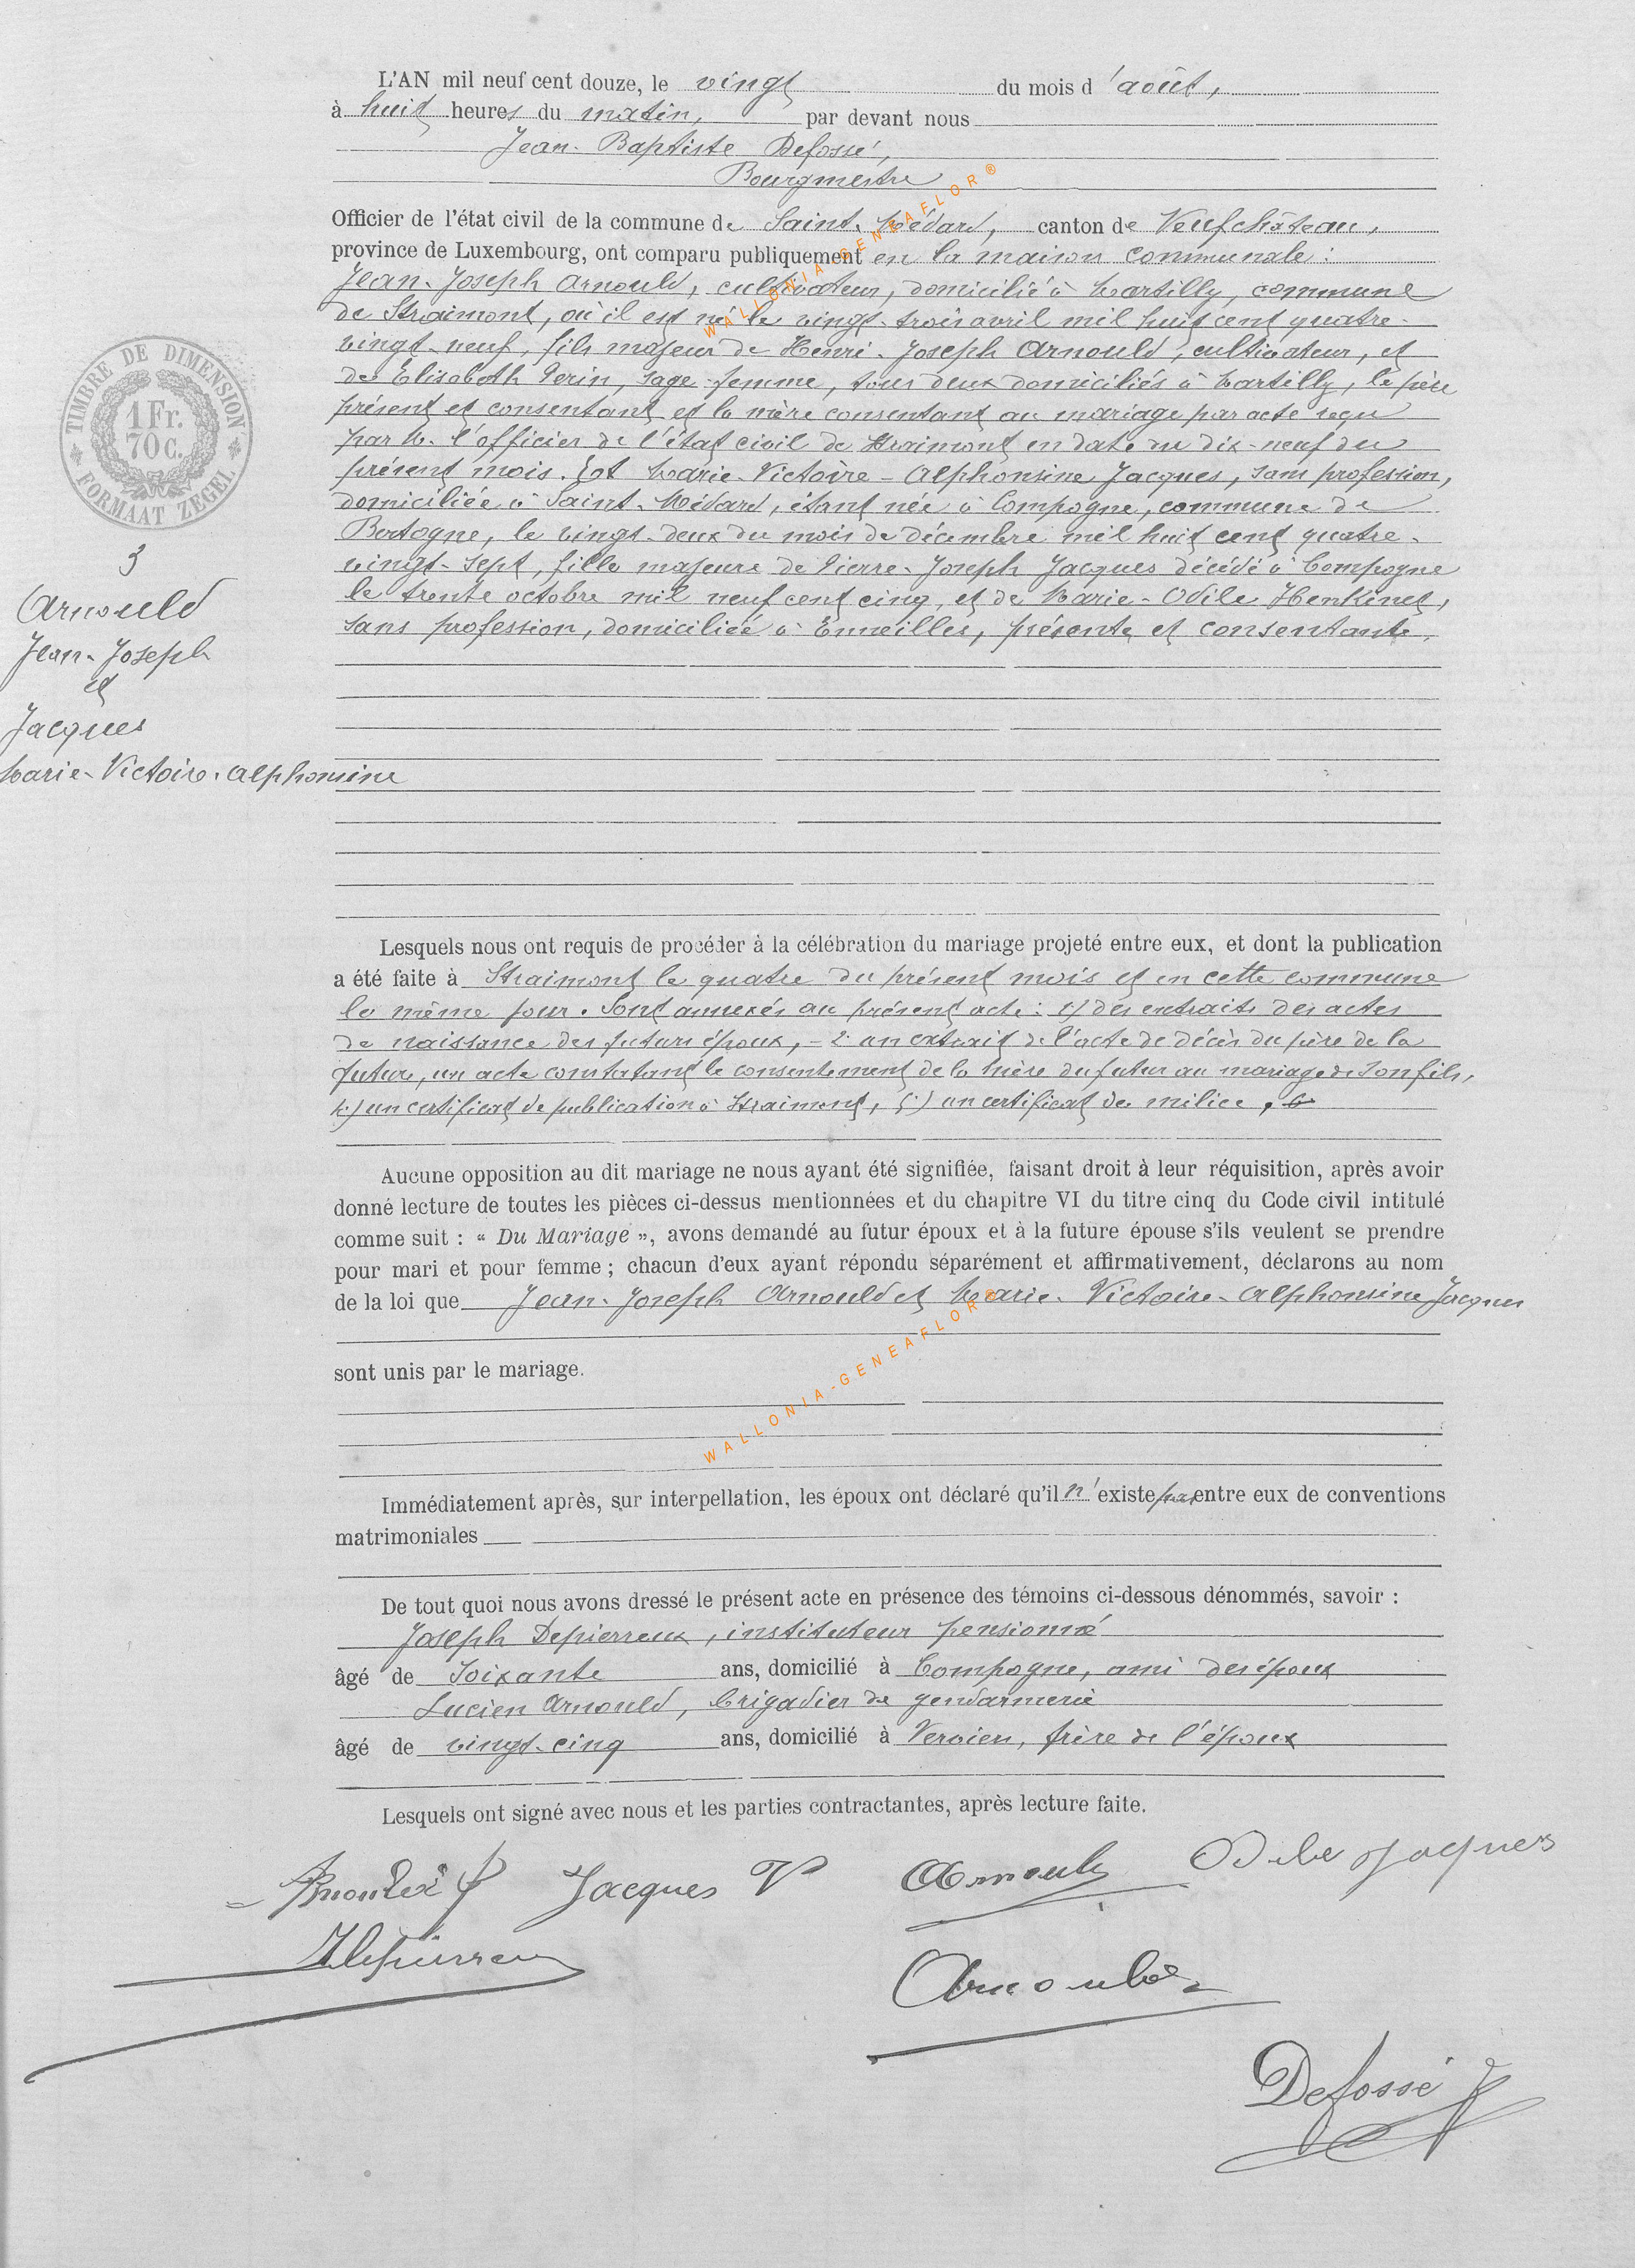 L'AN mil neuf cent douze, le vingt du mois d'août,
à huit heures du matin, par devant nous
Jean-Baptiste Defossé,
Bourgmestre
Officier de l'état civil de la commune de Saint-Médard, canton de Neufchâteau,
province de Luxembourg, ont comparu publiquement en la maison communale :
Jean-Joseph Arnould, cultivateur, domicilié à Martilly, commune
de Straimont, où il est né le vingt-trois avril mil huit cent quatre-
vingt-neuf, fils majeur de Henri-Joseph Arnould, cultivateur, et
de Élisabeth Perin, sage-femme, tous deux domiciliés à Martilly, le père
présent et consentant et la mère consentant au mariage par acte reçu
par M. l'officier de l'état civil de Straimont en date du dix-neuf du
présent mois. Et Marie-Victoire-Alphonsine Jacques, sans profession,
domiciliée à Saint-Médard, étant née à Compogne, commune de
Bertogne, le vingt-deux du mois de décembre mil huit cent quatre-
vingt-sept, fille majeure de Pierre-Joseph Jacques décédé à Compogne
le trente octobre mil neuf cent cinq, et de Marie-Odile Henkinet,
sans profession, domiciliée à Enneilles, présente et consentante.
TIMBRE DE DIMENSION
1 Fr.
70 c.
FORMAAT ZEGEL
3
Arnould
Jean-Joseph
et
Jacques
Marie-Victoire-Alphonsine
Lesquels nous ont requis de procéder à la célébration du mariage projeté entre eux, et dont la publication
a été faite à Straimont le quatre du présent mois et en cette commune
le même jour. Sont annexés au présent acte : 1) des extraits des actes
de naissance des futurs époux, - 2. un extrait de l'acte de décès du père de la
future, un acte constatant le consentement de la mère du futur au mariage de son fils,
4.) un certificat de publication à Straimont, 5.) un certificat de milice.
Aucune opposition au dit mariage ne nous ayant été signifiée, faisant droit à leur réquisition, après avoir
donné lecture de toutes les pièces ci-dessus mentionnées et du chapitre VI du titre cinq du Code civil intitulé
comme suit : « Du Mariage », avons demandé au futur époux et à la future épouse s'ils veulent se prendre
pour mari et pour femme ; chacun d'eux ayant répondu séparément et affirmativement, déclarons au nom
de la loi que Jean-Joseph Arnould et Marie-Victoire-Alphonsine Jacques
sont unis par le mariage.
Immédiatement après, sur interpellation, les époux ont déclaré qu'il n'existe pas entre eux de conventions
matrimoniales
De tout quoi nous avons dressé le présent acte en présence des témoins ci-dessous dénommés, savoir :
Joseph Depierreux, instituteur pensionné
âgé de soixante ans, domicilié à Compogne, ami des époux
Lucien Arnould, brigadier de gendarmerie
âgé de vingt-cinq ans, domicilié à Vervien, frère de l'époux
Lesquels ont signé avec nous et les parties contractantes, après lecture faite.
Arnould J Jacques V Arnould Odile Jacques
JDepierreux
Arnould
Defossé J
WALLONIA-GENEAFLOR®
WALLONIA-GENEAFLOR®